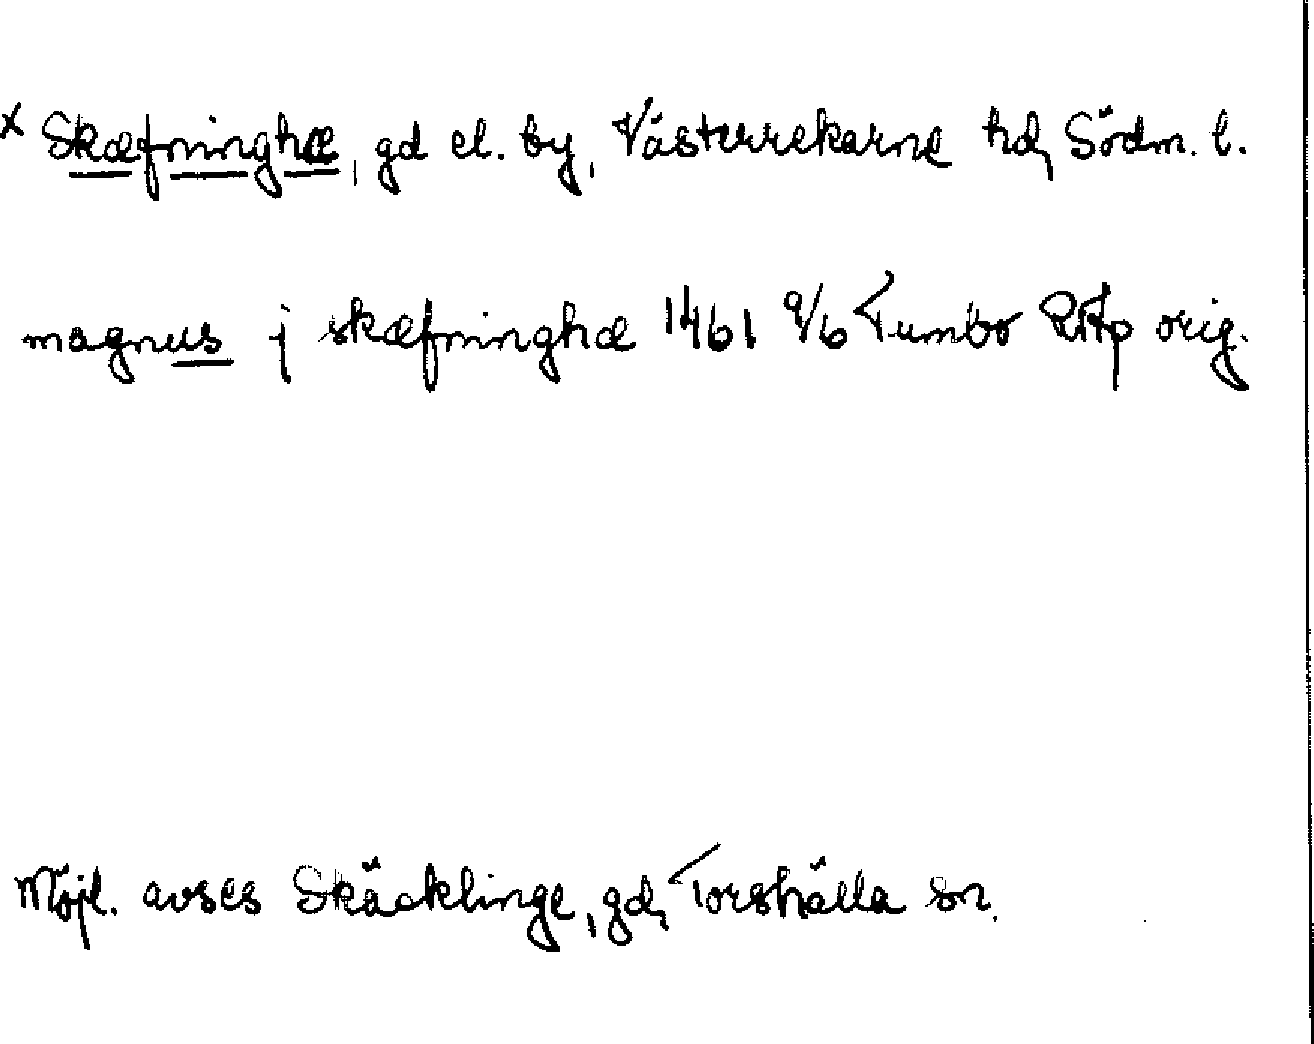 x Skæfninghæ, gd el. by, Västerrekarne hd, Södm. l.
magnus j skæfninghæ 1461 9/6 Tumbo RAp orig.
Möjl. avses Skäcklinge, gd, Torshälla sn.